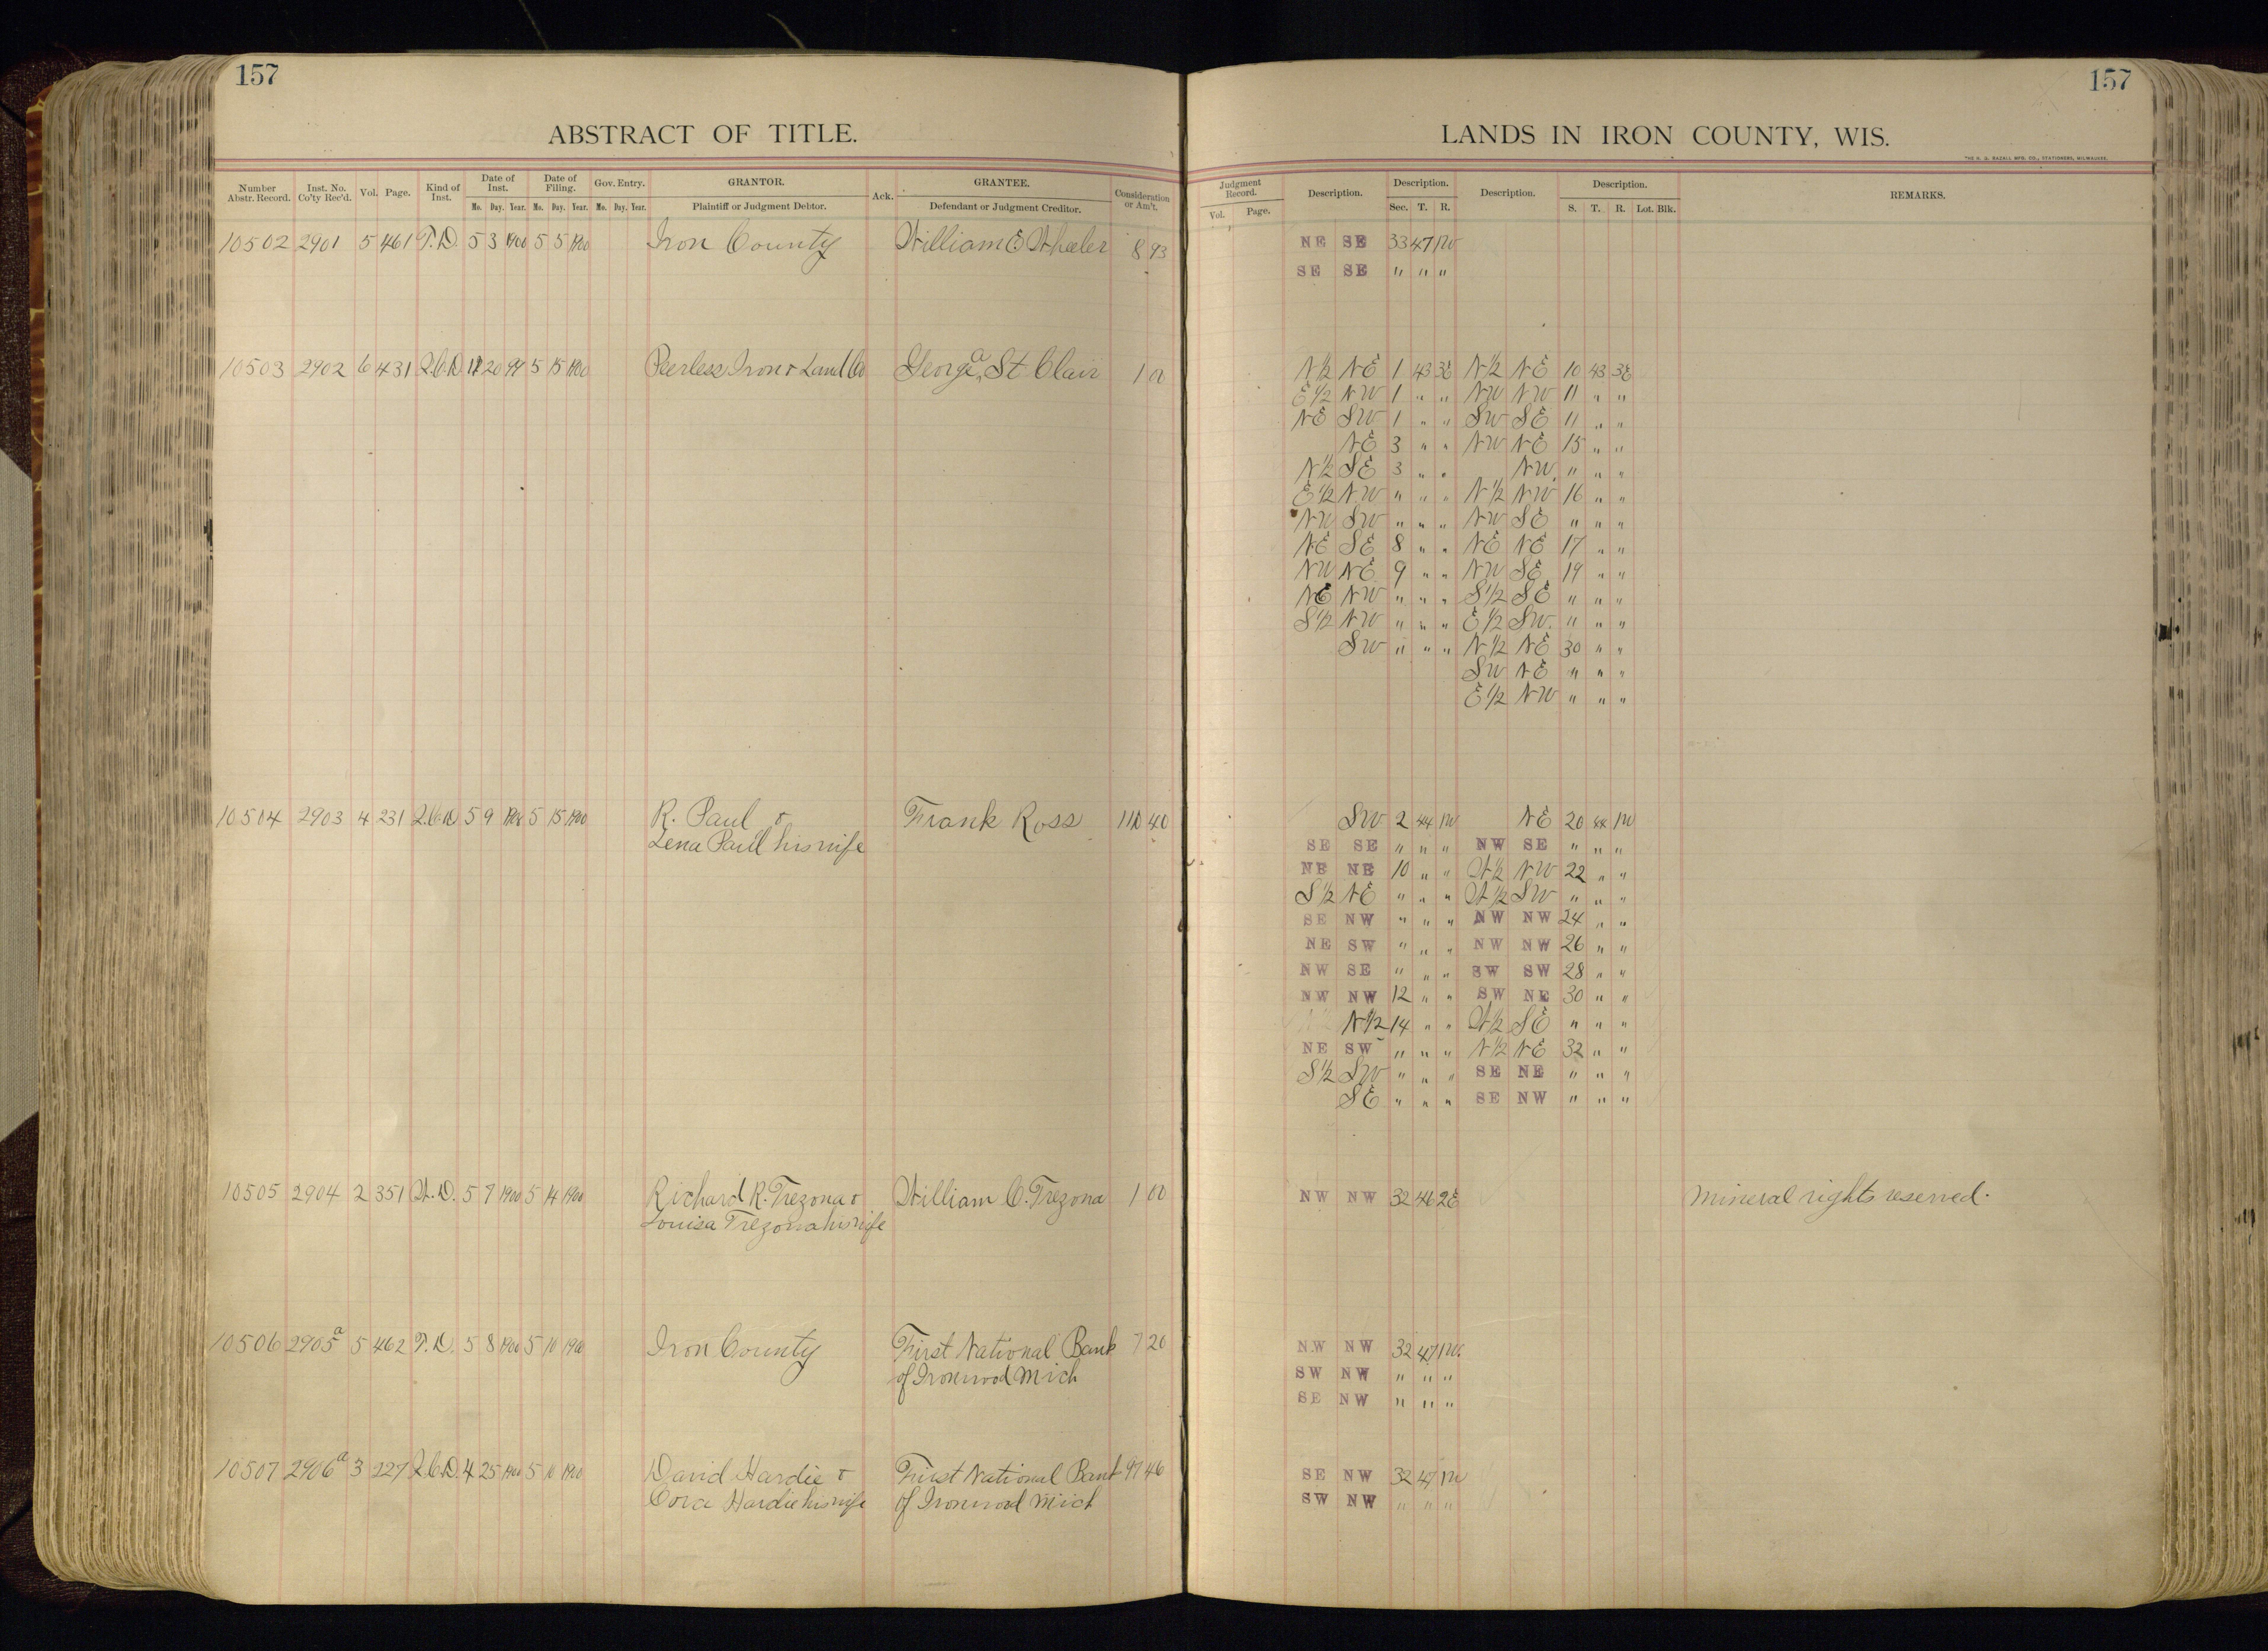 157
157
ABSTRACT OF TITLE.
LANDS IN IRON COUNTY, WIS.
THE H. G. RAZALL MFG. CO., STATIONERS, MILWAUKEE.
Number Abstr. Record. Inst. No. Co'ty Rec'd. Vol. Page. Kind of Inst. Date of Inst. Date of Filing. Gov. Entry. GRANTOR. Ack. GRANTEE. Consideration or Am't.
Mo. Day. Year. Mo. Day. Year. Mo. Day. Year. Plaintiff or Judgment Debtor. Defendant or Judgment Creditor.
Judgment Record. Description. Description. Description. Description. REMARKS.
Vol. Page. Sec. T. R. S. T. R. Lot. Blk.
10502 2901 5 461 T.D. 5 3 1900 5 5 1900 Iron County William E Wheeler 8 93 NE SE 33 47 1W
SE SE " " "
10503 2902 6 431 Q.C.D 20 99 5 15 1900 Peerless Iron & Land Co George A St Clair 1 00 N½ NE 1 43 3E N½ NE 10 43 3E
E½ NW 1 " " NW NW 11 " "
NE SW 1 " " SW SE 11 " "
NE 3 " " NW NE 15 " "
N½ SE 3 " " NW " " "
E½ NW " " " N½ NW 16 " "
NW SW " " " NW SE " " "
NE SE 8 " " NE NE 17 " "
NW NE 9 " " NW SE 19 " "
NE NW " " " S½ SE " " "
S½ NW " " " E½ SW " " "
SW " " " N½ NE 30 " "
SW NE " " "
E½ NW " " "
10504 2903 4 231 Q.C.D 5 9 1900 5 15 1900 R. Paul & Frank Ross 110 40 SW 2 44 1W NE 20 44 1W
Lena Paull his wife SE SE " " " NW SE " " "
NE NE 10 " " W½ NW 22 " "
S½ NE " " " W½ SW " " "
SE NW " " " NW NW 24 " "
NE SW " " " NW NW 26 " "
NW SE " " " SW SW 28 " "
NW NW 12 " " SW NE 30 " "
N½ 14 " " W½ SE " " "
NE SW " " " N½ NE 32 " "
S½ SW " " " SE NE " " "
SE " " " SE NW " " "
10505 2904 2 351 W.D. 5 9 1900 5 14 1900 Richard R. Trezona & William C. Trezona 1 00 NW NW 32 46 2E Mineral rights reserved.
Louisa Trezona his wife
10506 2905a 5 462 T.D. 5 8 1900 5 10 1900 Iron County First National Bank 7 20 NW NW 32 47 1W.
of Ironwood Mich SW NW " " "
SE NW " " "
10507 2906a 3 227 Q.C.D. 4 25 1900 5 10 1900 David Hardie & First National Bank 97 46 SE NW 32 47 1W
Cora Hardie his wife of Ironwood Mich SW NW " " "